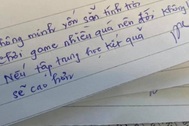 thông minh vốn sẵn tính trời
chơi game nhiều quá nên đời không
Nếu tập trung học kết quả
sẽ cao hơn